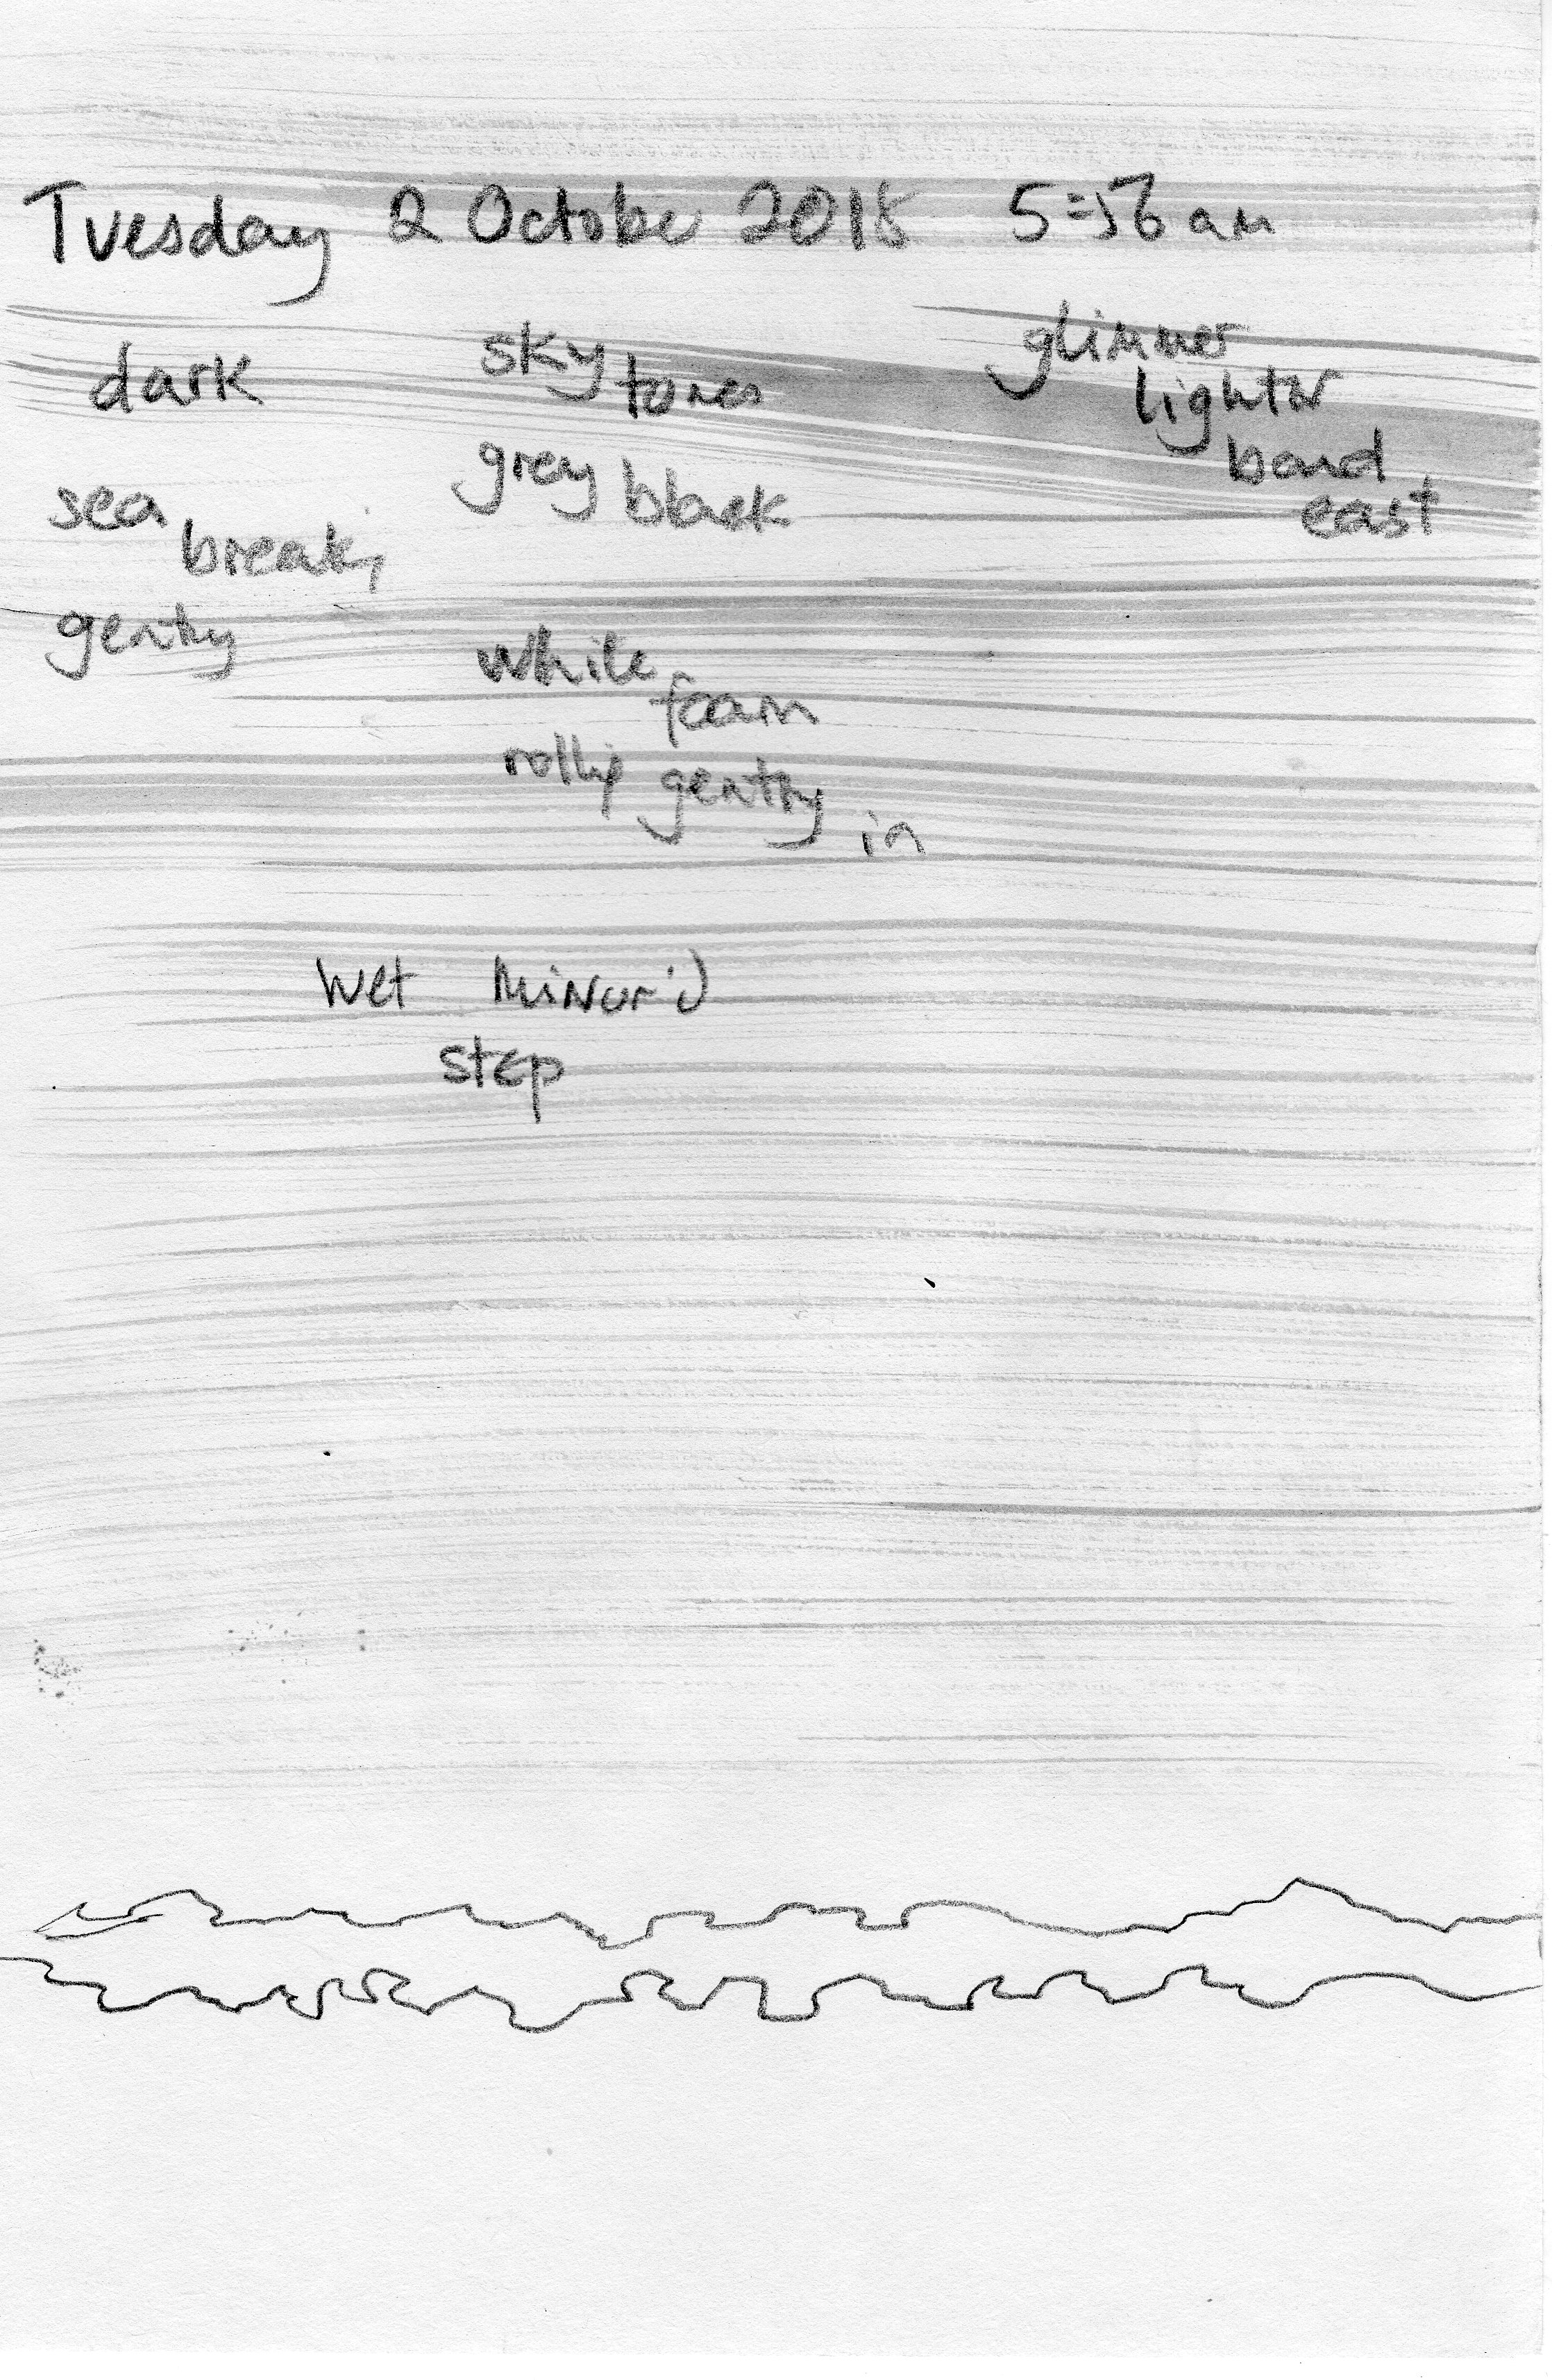 Tuesday 2 October 2018 5:56 am
dark
sea
breaking
gently
sky
tones
grey black
white
foam
rolling gently in
glimmer
lighter
band
east
wet mirror'd
step